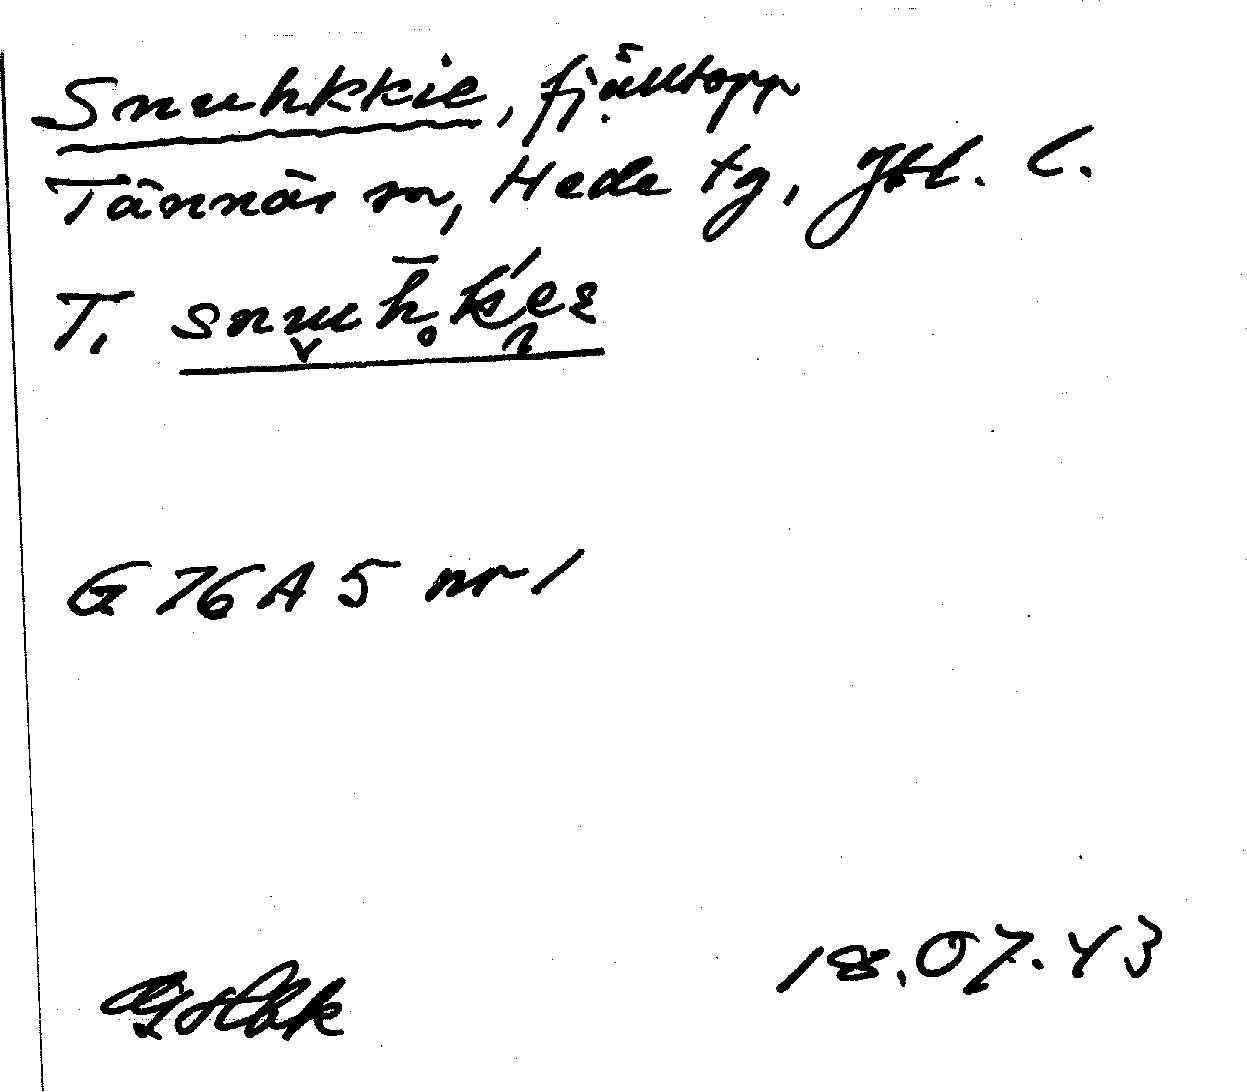 Snuhkkie, fjälltopp
Tännäs sn, Hede tg, Jtl. l.
T.
G 76A 5 nr 1
18.07.43